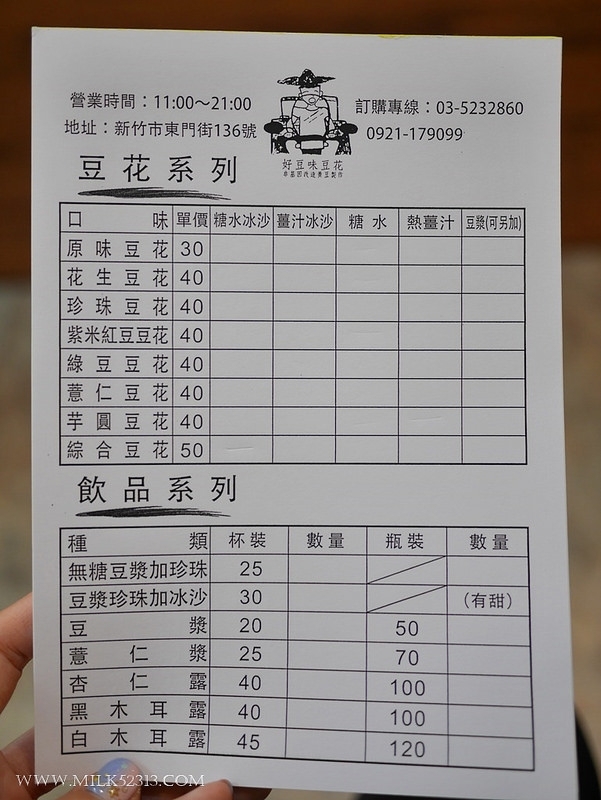 營業時間：11:00～21:00
訂購專線：03-5232860
地址：新竹市東門街136號
0921-179099
好豆味豆花
非基因改造黃豆製作
豆花系列
口味 單價 糖水冰沙 薑汁冰沙 糖水 熱薑汁 豆漿(可另加)
原味豆花 30
花生豆花 40
珍珠豆花 40
紫米紅豆豆花 40
綠豆豆花 40
薏仁豆花 40
芋圓豆花 40
綜合豆花 50
飲品系列
種類 杯裝 數量 瓶裝 數量
無糖豆漿加珍珠 25
豆漿珍珠加冰沙 30 (有甜)
豆漿 20 50
薏仁漿 25 70
杏仁露 40 100
黑木耳露 40 100
白木耳露 45 120
WWW.MILK52313.COM